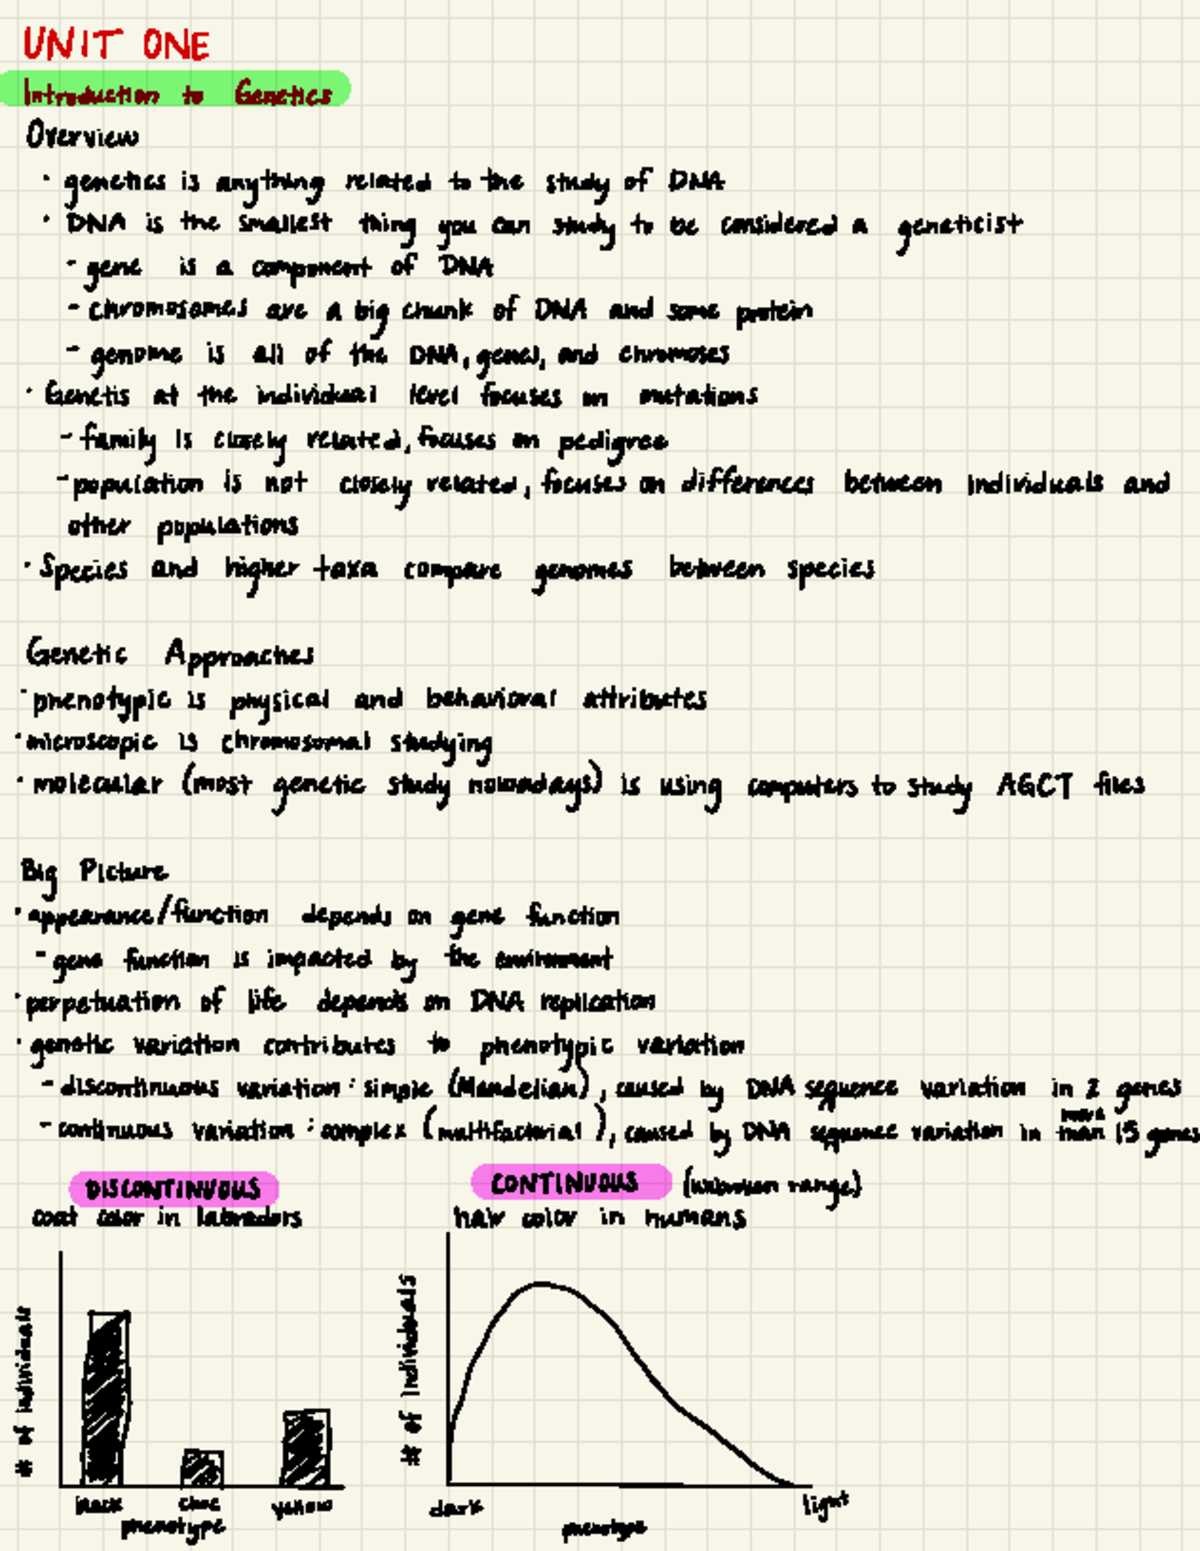 UNIT ONE
Introduction to Genetics
Overview
· genetics is anything related to the study of DNA
· DNA is the smallest thing you can study to be considered a geneticist
- gene is a component of DNA
- chromosomes are a big chunk of DNA and some protein
- genome is all of the DNA, genes, and chromoses
· Genetis at the individual level focuses on mutations
- family is closely related, focuses on pedigree
- population is not closely related, focuses on differences between individuals and
other populations
· Species and higher taxa compare genomes between species
Genetic Approaches
· phenotypic is physical and behavioral attributes
· microscopic is chromosomal studying
· molecular (most genetic study nowadays) is using computers to study AGCT files
Big Picture
· appearance/function depends on gene function
- gene function is impacted by the environment
· perpetuation of life depends on DNA replication
· genetic variation contributes to phenotypic variation
- discontinuous variation: simple (Mendelian), caused by DNA sequence variation in 2 genes
- continuous variation: complex (multifactorial), caused by DNA sequence variation in more than 15 genes
DISCONTINUOUS
coat color in labradors
# of individuals
black choc yellow
phenotype
CONTINUOUS (unbroken range)
hair color in humans
# of individuals
dark light
phenotype